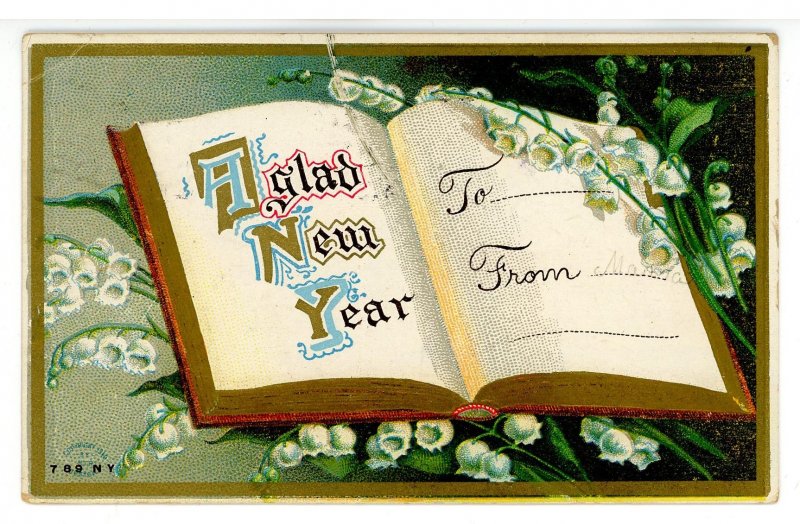 A glad
New
Year
To
From Mama
789 NY